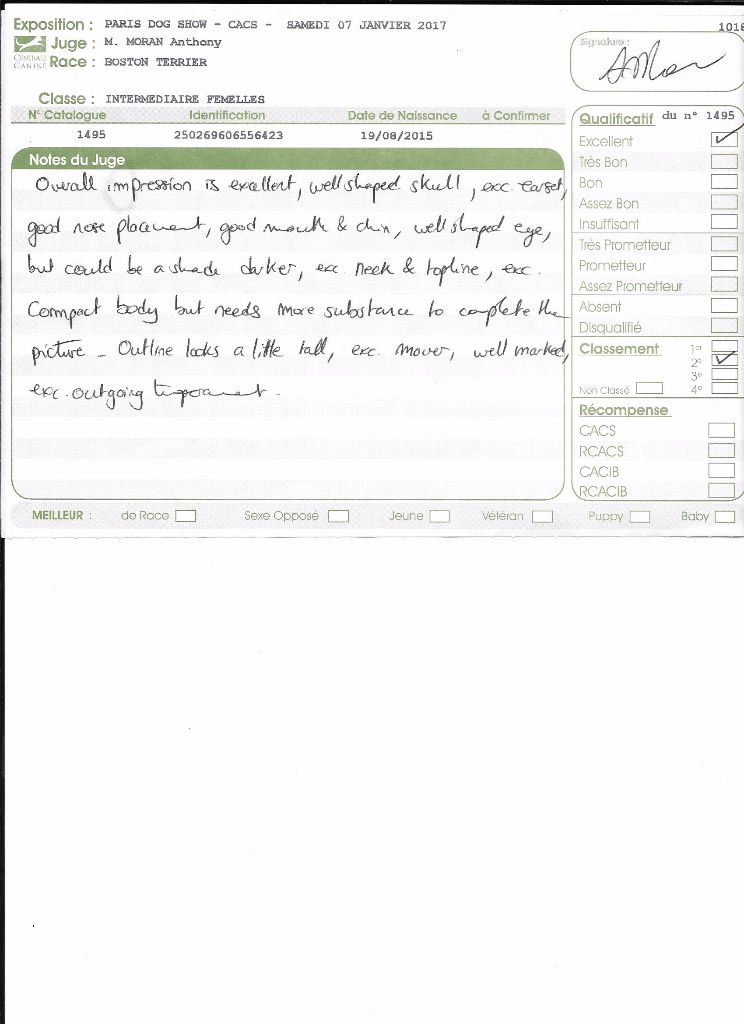 Exposition : PARIS DOG SHOW - CACS - SAMEDI 07 JANVIER 2017
1018
Juge : M. MORAN Anthony
CENTRALE CANINE
Race : BOSTON TERRIER
Signature :
AMoran
Classe : INTERMEDIAIRE FEMELLES
N° Catalogue Identification Date de Naissance à Confirmer
1495 250269606556423 19/08/2015
Notes du Juge
Overall impression is excellent, well shaped skull, exc. earset,
good nose placement, good mouth & chin, well shaped eye,
but could be a shade darker, exc. neck & topline, exc.
Compact body but needs more substance to complete the
picture - Outline looks a little tall, exc. mover, well marked,
exc. outgoing temperament.
Qualificatif du n° 1495
Excellent
Très Bon
Bon
Assez Bon
Insuffisant
Très Prometteur
Prometteur
Assez Prometteur
Absent
Disqualifié
Classement 1er
2e
3e
Non Classé 4e
Récompense
CACS
RCACS
CACIB
RCACIB
MEILLEUR : de Race Sexe Opposé Jeune Vétéran Puppy Baby